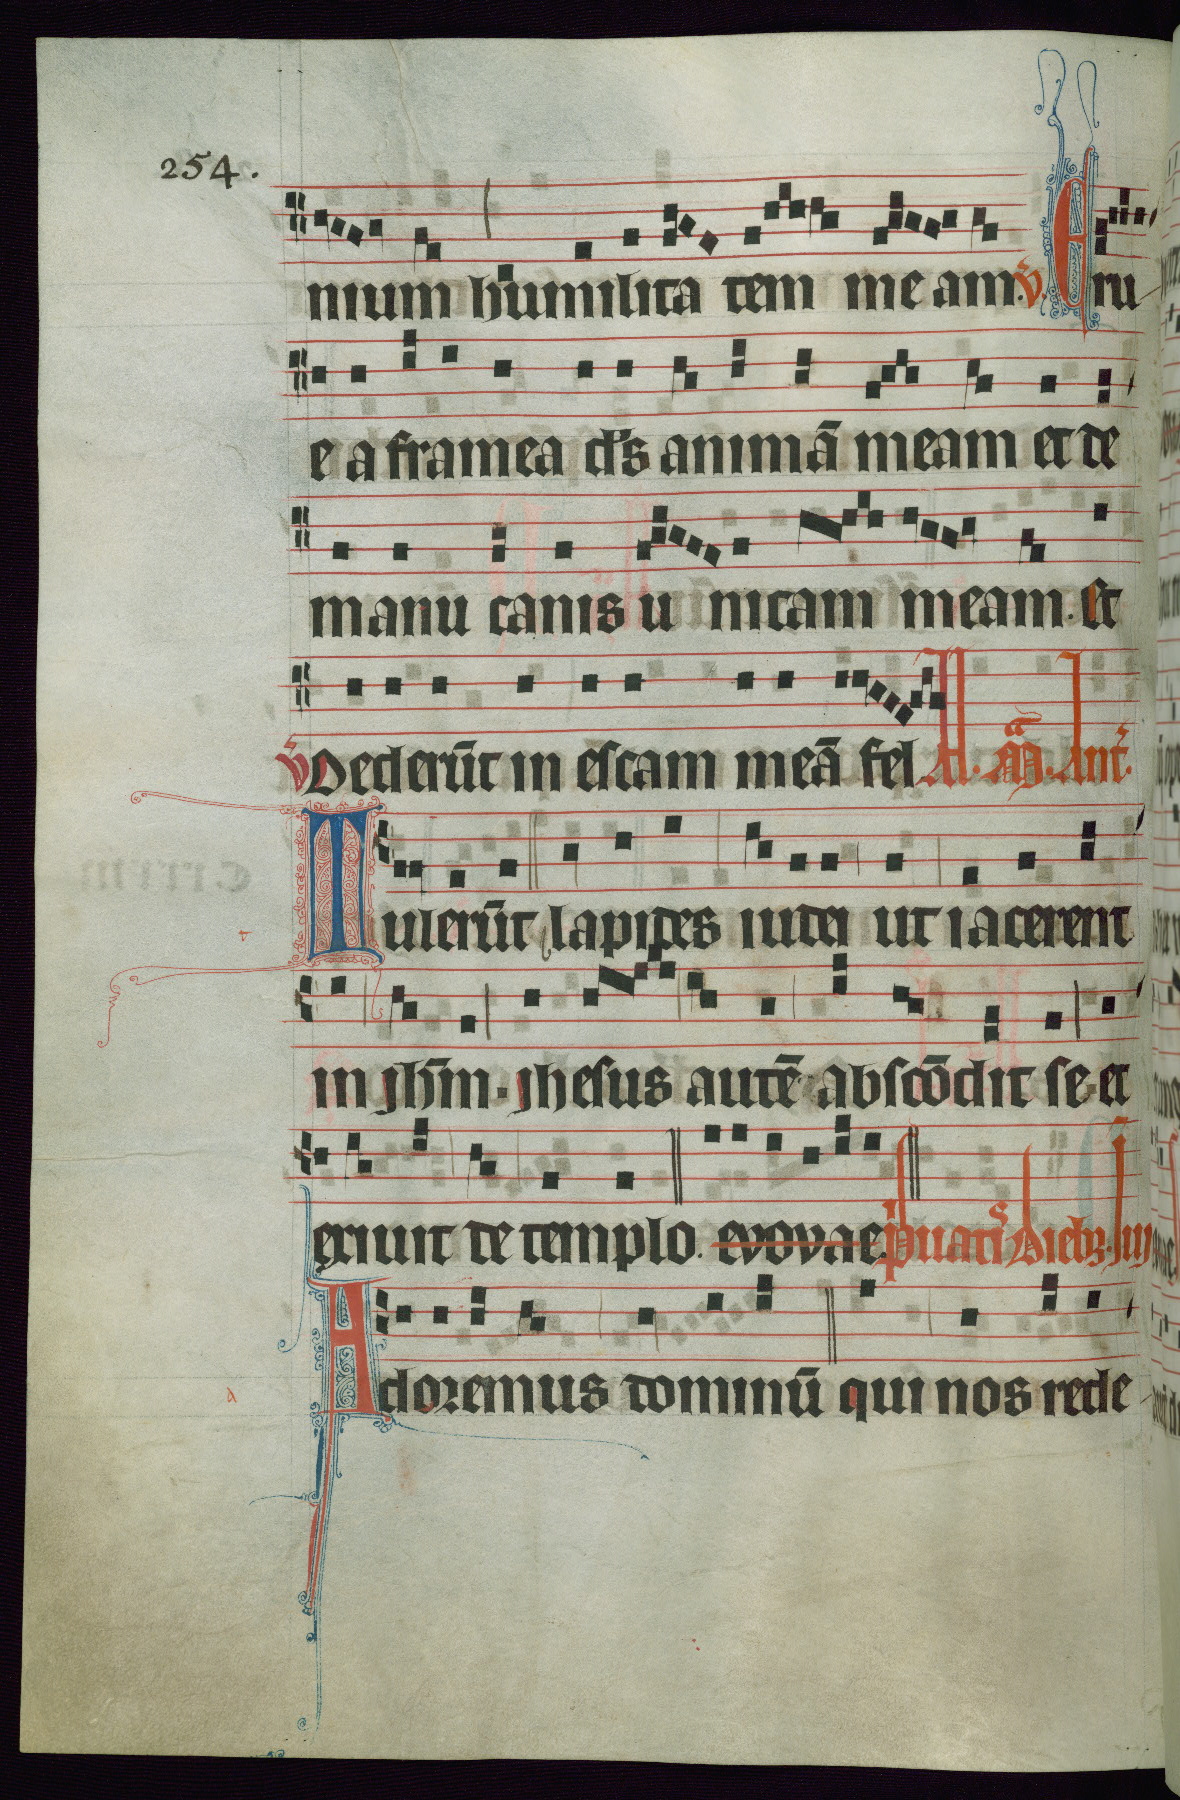 254.
nium humilita tem me am. v̄. Eru
e a framea ds̄ animā meam et de
manu canis u nicam meam. Et
v̄ Dederūt in escam meā fel Al. M̄. Ant̄.
Tulerūt lapides iudei ut iacerent
t
in jhm̄. jhesus autē abscōdit se et
exiuit de templo. evovae. puatis diebȝ. Iu
Adoremus dominū qui nos rede
a